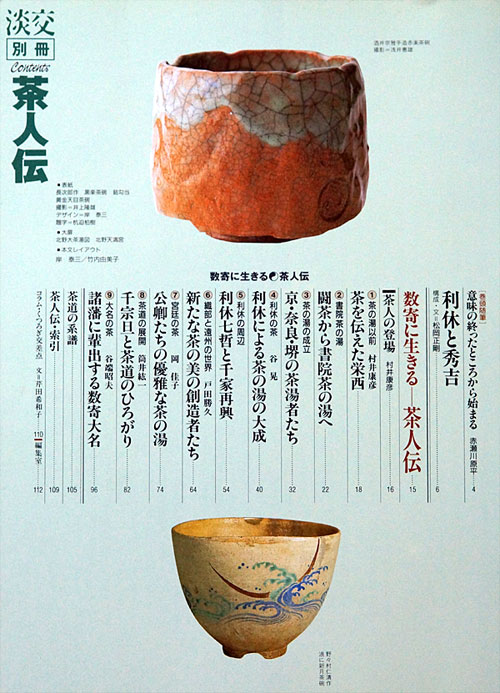 淡交
別冊
Contents
茶人伝
酒井宗雅手造赤楽茶碗
撮影=浅井憲雄
●表紙
長次郎作 黒楽茶碗 銘勾当
黄金天目茶碗
撮影=井上隆雄
デザイン=岸 泰三
題字=杭迫柏樹
●大扉
北野大茶湯図 北野天満宮
●本文レイアウト
岸 泰三/竹内由美子
数寄に生きる 茶人伝
巻頭随筆
意味の終ったところから始まる 赤瀬川原平 4
利休と秀吉
構成・文=松岡正剛 6
数寄に生きる──茶人伝 15
茶人の登場 村井康彦 16
①茶の湯以前 村井康彦
茶を伝えた栄西 18
②書院茶の湯
闘茶から書院茶の湯へ 22
③茶の湯の成立
京・奈良・堺の茶湯者たち 32
④利休の茶 谷 晃
利休による茶の湯の大成 40
⑤利休の周辺
利休七哲と千家再興 54
⑥織部と遠州の世界 戸田勝久
新たな茶の美の創造者たち 64
⑦宮廷の茶 岡 佳子
公卿たちの優雅な茶の湯 74
⑧茶道の展開 筒井紘一
千宗旦と茶道のひろがり 82
⑨大名の茶 谷端昭夫
諸藩に輩出する数寄大名 96
茶道の系譜 105
茶人伝・索引 109
コラム・くつろぎ交差点 文=岸田希和子 110
編集室 112
野々村仁清作
波に新月茶碗